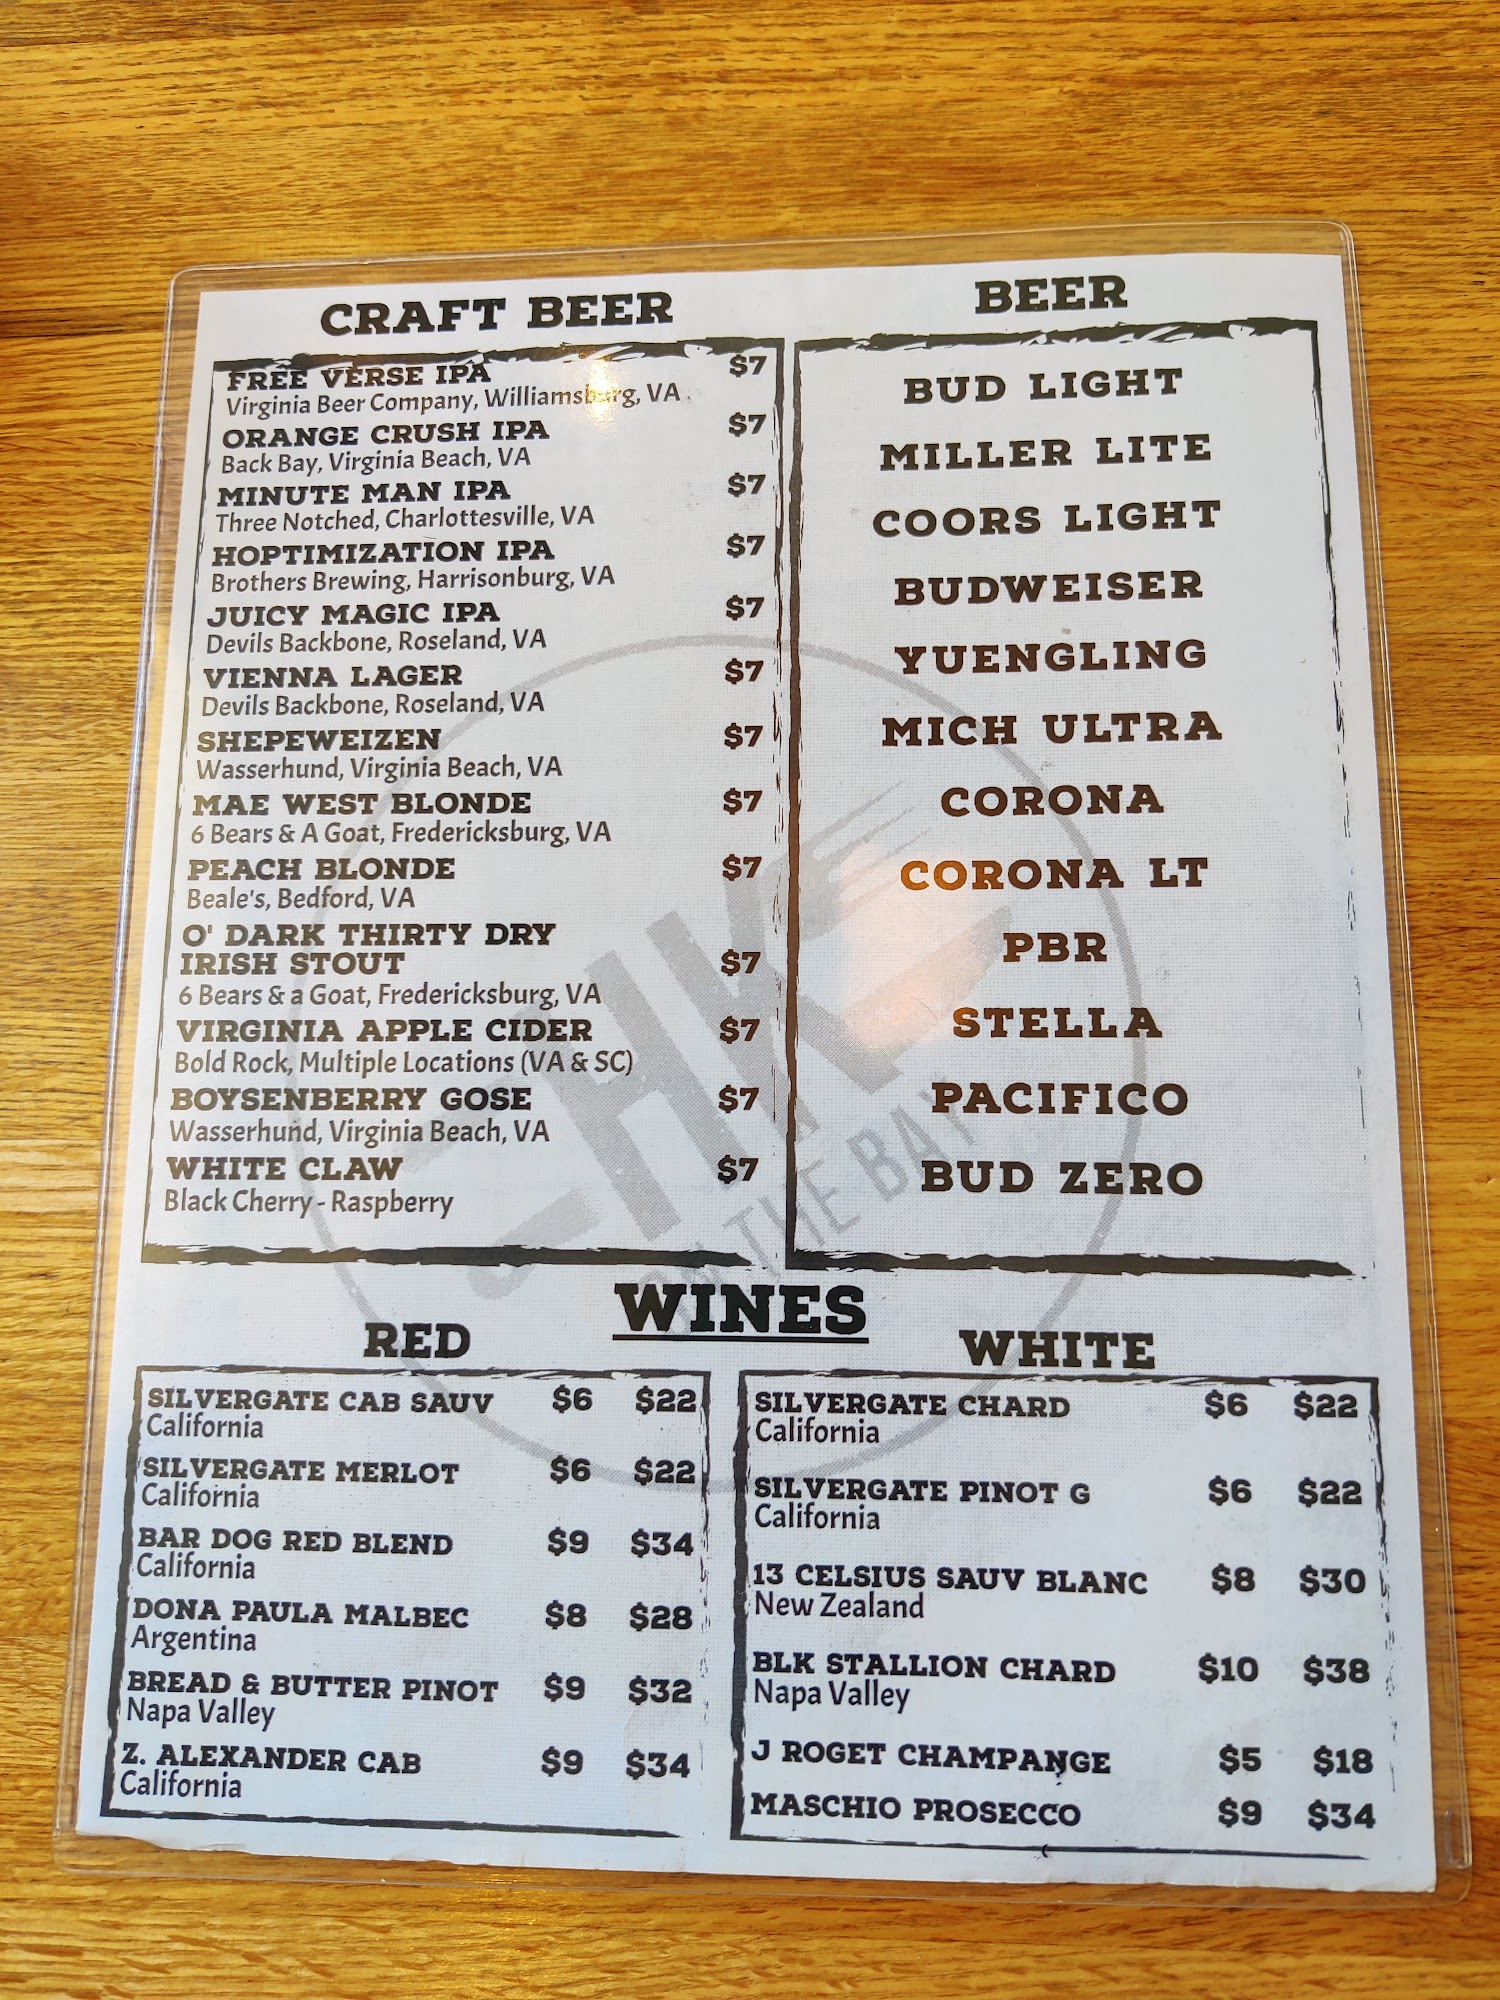 CRAFT BEER
FREE VERSE IPA $7
Virginia Beer Company, Williamsburg, VA
ORANGE CRUSH IPA $7
Back Bay, Virginia Beach, VA
MINUTE MAN IPA $7
Three Notched, Charlottesville, VA
HOPTIMIZATION IPA $7
Brothers Brewing, Harrisonburg, VA
JUICY MAGIC IPA $7
Devils Backbone, Roseland, VA
VIENNA LAGER $7
Devils Backbone, Roseland, VA
SHEPEWEIZEN $7
Wasserhund, Virginia Beach, VA
MAE WEST BLONDE $7
6 Bears & A Goat, Fredericksburg, VA
PEACH BLONDE $7
Beale's, Bedford, VA
O' DARK THIRTY DRY
IRISH STOUT $7
6 Bears & a Goat, Fredericksburg, VA
VIRGINIA APPLE CIDER $7
Bold Rock, Multiple Locations (VA & SC)
BOYSENBERRY GOSE $7
Wasserhund, Virginia Beach, VA
WHITE CLAW $7
Black Cherry - Raspberry
BEER
BUD LIGHT
MILLER LITE
COORS LIGHT
BUDWEISER
YUENGLING
MICH ULTRA
CORONA
CORONA LT
PBR
STELLA
PACIFICO
BUD ZERO
HK
ON THE BAY
WINES
RED
SILVERGATE CAB SAUV $6 $22
California
SILVERGATE MERLOT $6 $22
California
BAR DOG RED BLEND $9 $34
California
DONA PAULA MALBEC $8 $28
Argentina
BREAD & BUTTER PINOT $9 $32
Napa Valley
Z. ALEXANDER CAB $9 $34
California
WHITE
SILVERGATE CHARD $6 $22
California
SILVERGATE PINOT G $6 $22
California
13 CELSIUS SAUV BLANC $8 $30
New Zealand
BLK STALLION CHARD $10 $38
Napa Valley
J ROGET CHAMPANGE $5 $18
MASCHIO PROSECCO $9 $34